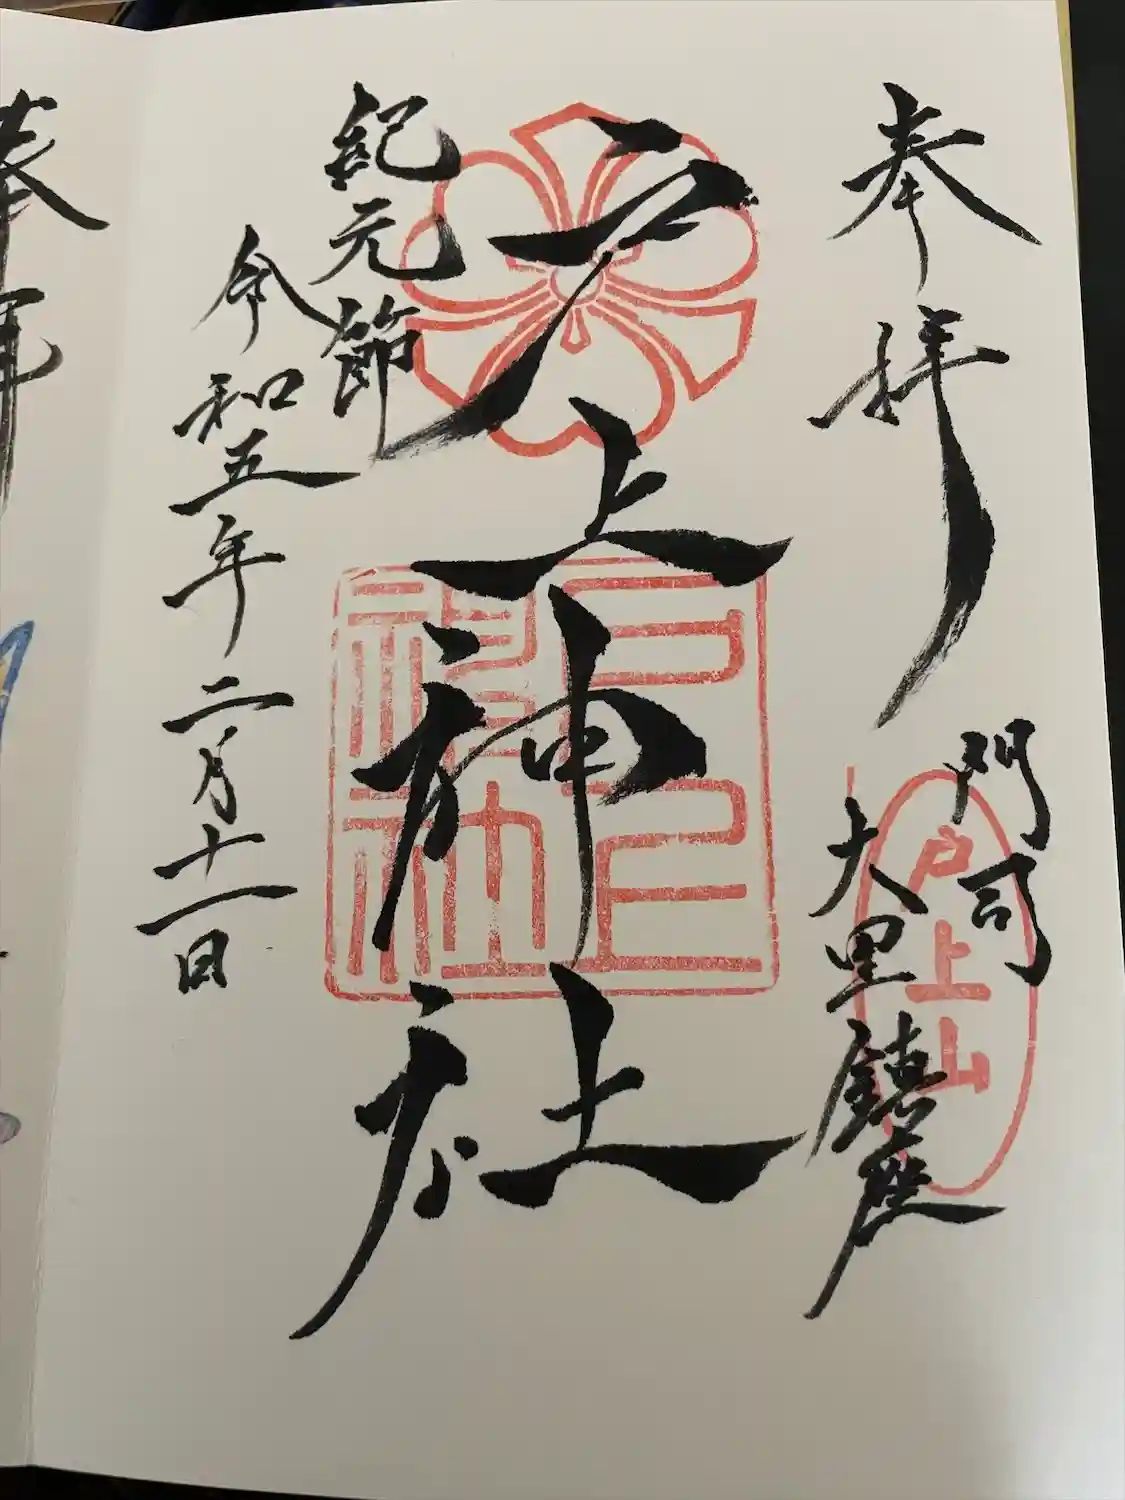 奉拝
門司
大里鎮座
戸上山
戸上神社
戸上神社
紀元節
令和五年二月十一日
奉拝